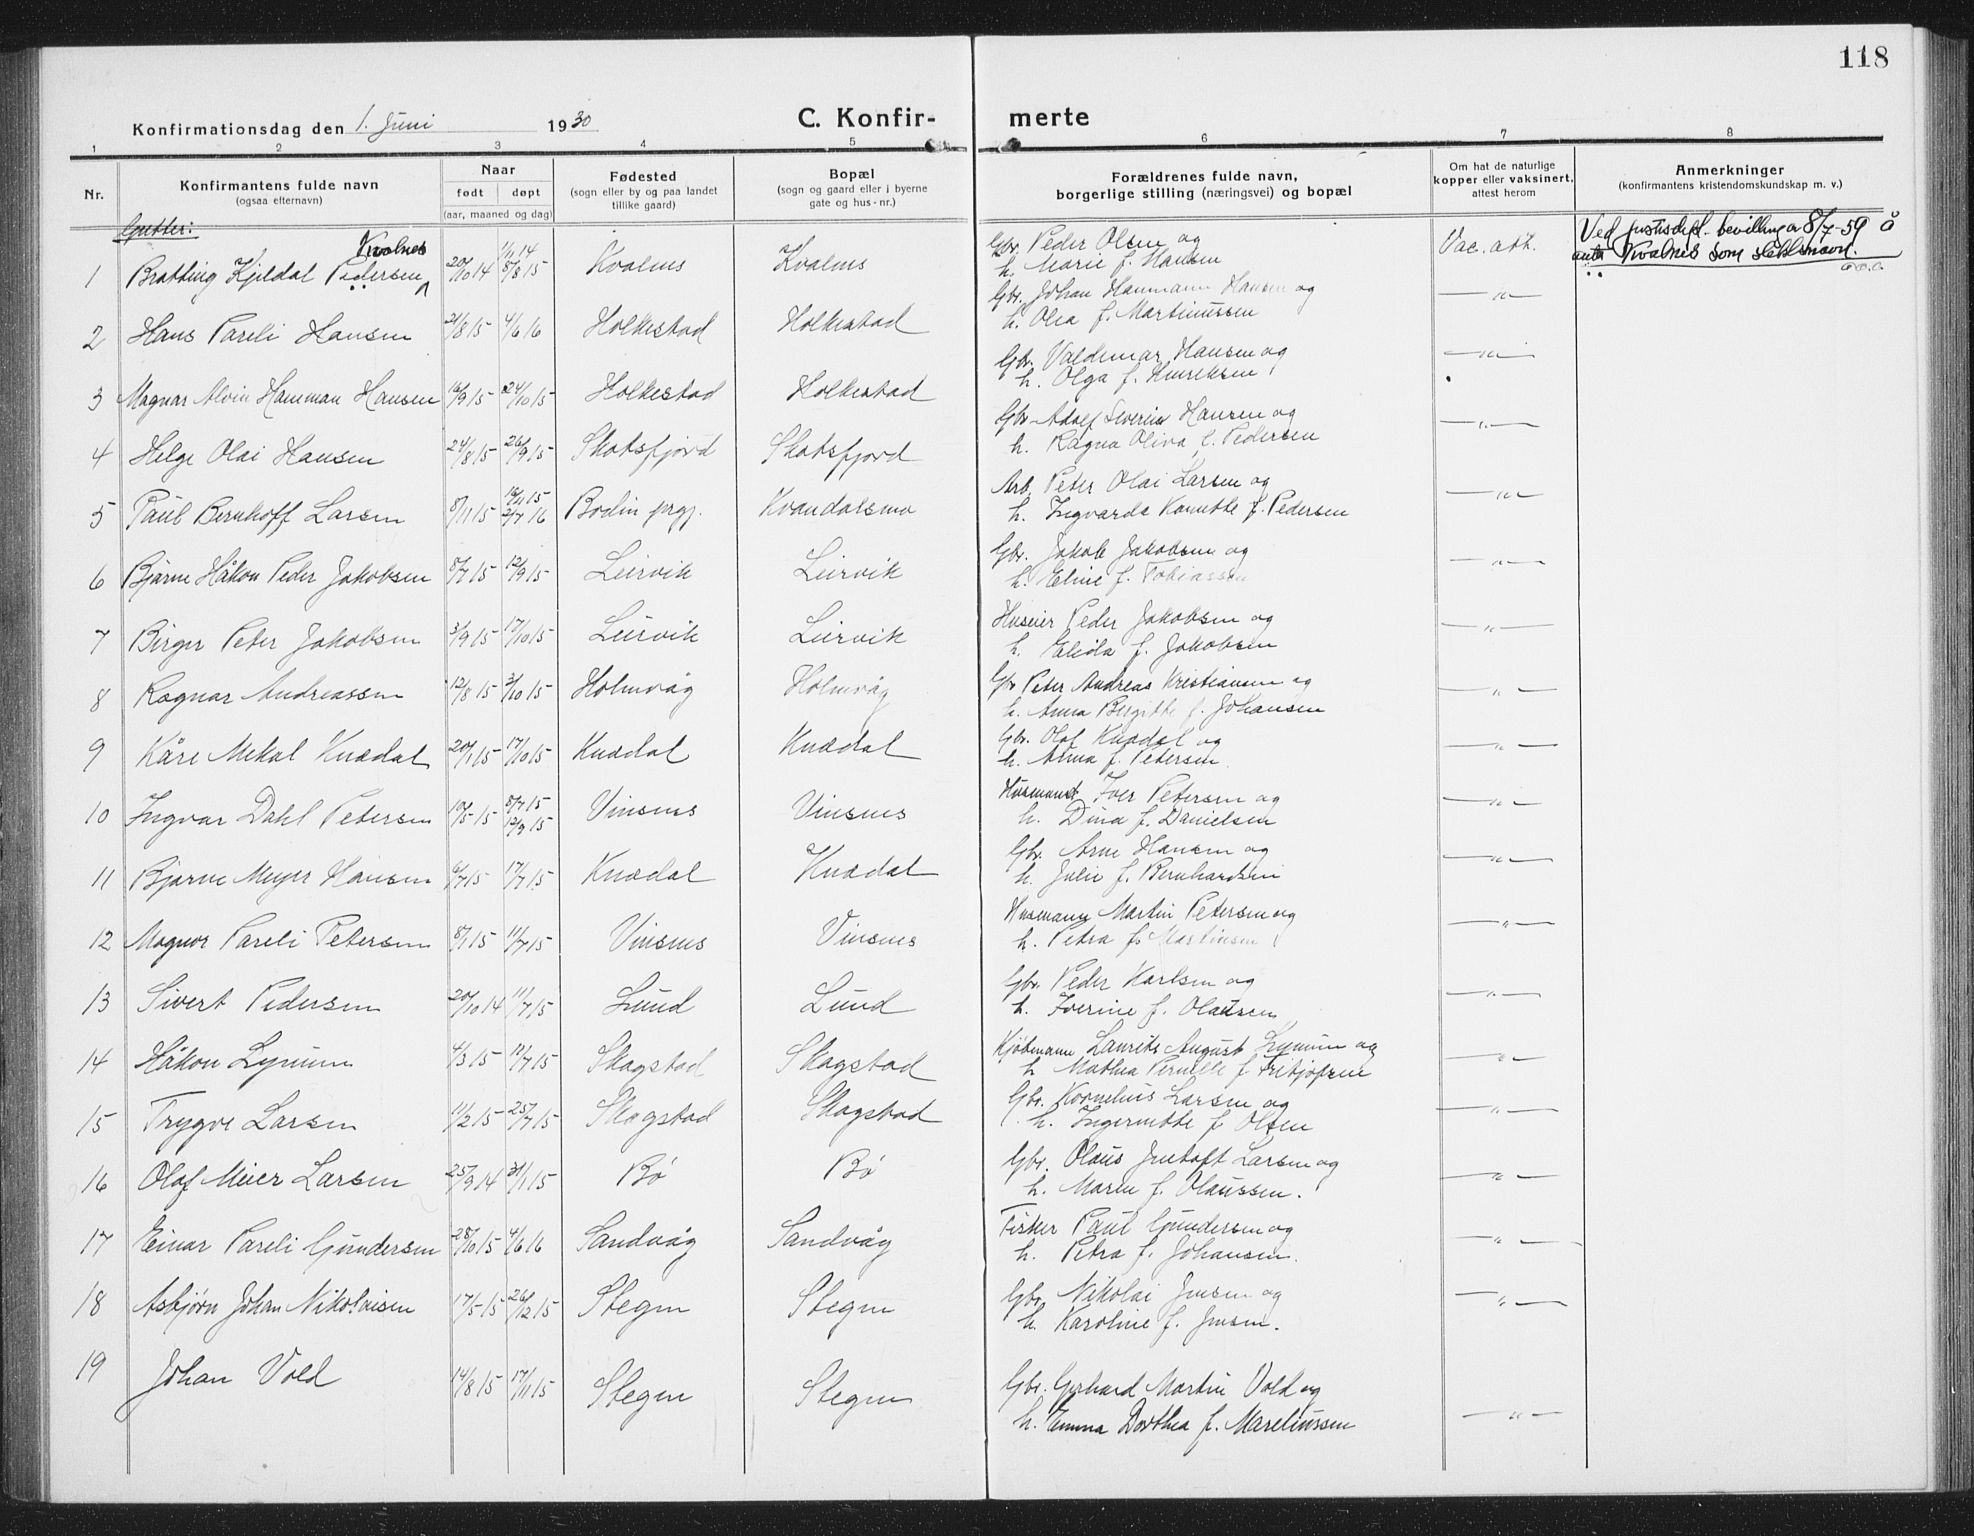 118
Konfirmationsdag den 1. Juni 1930
C. Konfir-
merte
1 2 3 4 5 6 7 8
Nr.
Konfirmantens fulde navn
(ogsaa efternavn)
Naar
født døpt
(aar, maaned og dag)
Fødested
(sogn eller by og paa landet
tillike gaard)
Bopæl
(sogn og gaard eller i byerne
gate og hus-nr.)
Forældrenes fulde navn,
borgerlige stilling (næringsvei) og bopæl
Om hat de naturlige
kopper eller vaksinert,
attest herom
Anmerkninger
(konfirmantens kristendomskundskap m. v.)
Gutter:
Kvalnes
1 Bratting Kjeldal Pedersen 20/10 14 1/11 14 8/8 15 Kvalnes Kvalnes
Gbr. Peder Olsen og
h. Marie f. Hansen
Vac. att.
Ved justisdept. bevilling av 8/7-59 å
anta Kvalnes som slektsnavn.
2 Hans Pareli Hansen 21/8 15 4/6 16 Holkestad Holkestad
Gbr. Johan Hanmann Hansen og
h. Olea f. Martinussen
—"—
3 Magnar Alvin Hamman Hansen 16/9 15 24/10 15 Holkestad Holkestad
Gbr. Valdemar Hansen og
h. Olga f. Henriksen
—"—
4 Helge Olai Hansen 24/8 15 26/9 15 Skotsfjord Skotsfjord
Gbr. Adolf Severin Hansen og
h. Ragna Oliva f. Pedersen
—"—
5 Paul Bernhoff Larsen 8/11 15 16/11 15 2/7 16 Bodin prgj. Kvandalsmo
Arb. Peter Olai Larsen og
h. Ingvarda Kanutte f. Pedersen
—"—
6 Bjarne Håkon Peder Jakobsen 8/7 15 12/9 15 Leirvik Leirvik
Gbr. Jakob Jakobsen og
h. Eline f. Tobiassen
—"—
7 Birger Peter Jakobsen 3/9 15 17/10 15 Leirvik Leirvik
Huseier Peder Jakobsen og
h. Elida f. Jakobsen
—"—
8 Ragnar Andreassen 12/8 15 3/10 15 Holmvåg Holmvåg
Gbr Peter Andreas Kristiansen og
h. Anna Bergitte f. Johansen
—"—
9 Kåre Mekal Knædal 20/1 15 17/10 15 Knædal Knædal
Gbr. Olaf Knædal og
h. Alma f. Petersen
—"—
10 Ingvar Dahl Petersen 10/5 15 8/7 15 12/9 15 Vinsnes Vinsnes
Husmand Iver Petersen og
h. Dina f. Danielsen
—"—
11 Bjarne Meyer Hansen 6/7 15 17/7 15 Knædal Knædal
Gbr. Arne Hansen og
h. Julie f. Bernhardsen
—"—
12 Magnor Pareli Petersen 8/1 15 11/7 15 Vinsnes Vinsnes
Husmann Martin Petersen og
h. Petra f. Martinsen
—"—
13 Sivert Pedersen 20/10 14 11/7 15 Lund Lund
Gbr. Peder Karlsen og
h. Iverine f. Oladsen
—"—
14 Håkon Lynum 4/3 15 11/7 15 Skagstad Skagstad
Kjøbmann Laurits August Lynum og
h Mathea Pernille f
—"—
15 Trygve Larsen 11/2 15 25/7 15 Skogstad Skogstad
Gbr. Kornelius Larsen og
h. Ingermette f Olsen
—"—
16 Olaf Meier Larsen 25/9 14 31/1 15 Bø Bø
Gbr. Olaus Jentoft Larsen og
h. Maren f. Olaussen.
—"—
17 Einar Pareli Gundersen 28/10 15 4/6 16 Sandvåg Sandvåg
Fisker Paul Gundersen og
h. Petra f. Johansen.
—"—
18 Asbjørn Johan Nikolaisen 17/5 15 26/12 15 Stegen Stegen
Gbr. Nikolai Jensen og
h. Karoline f. Jensen.
—"—
19 Johan Vold 14/8 15 17/11 15 Stegen Stegen
Gbr. Gerhard Martin Vold og
h. Emma Dorthea f. Mareliussen
—"—